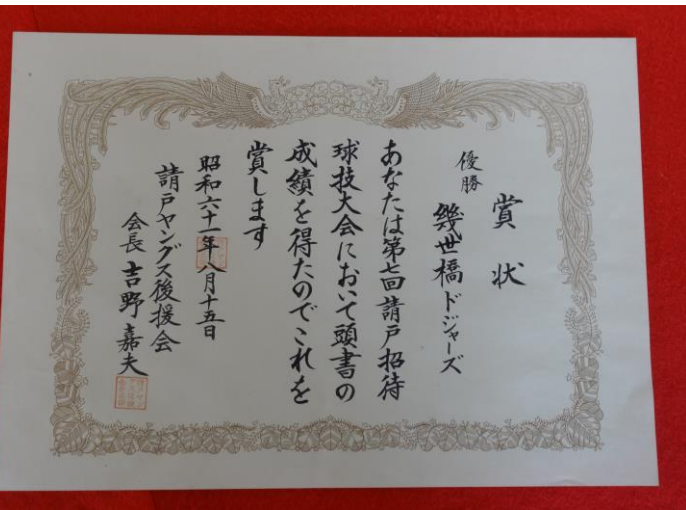 賞状
優勝
幾世橋ドジャーズ
あなたは第七回請戸招待
球技大会において頭書の
成績を得たのでこれを
賞します
昭和六十一年八月十五日
請戸ヤングス後援会
会長 吉野嘉夫